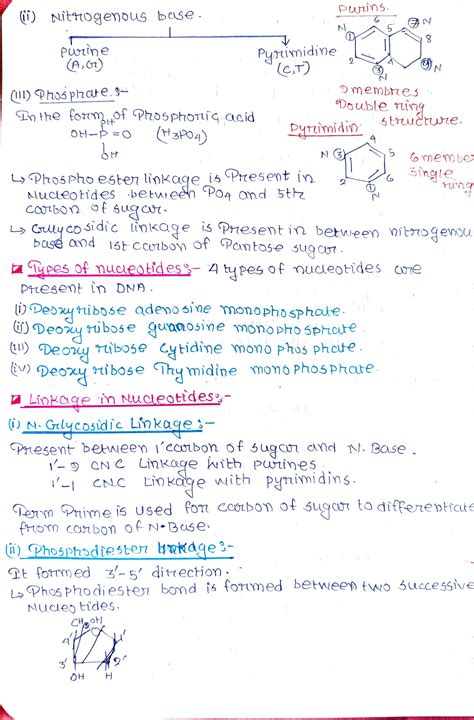 (ii) Nitrogenous base.
Purine
(A,G)
Pyrimidine
(C,T)
Purins.
N
1
6
5
7
N
8
2
3
N
4
9
N
9 membres
Double ring
structure.
(iii) Phosphate :-
In the form of Phosphoric acid
OH
OH-P=O (H3PO4)
OH
Pyrimidin:
4
N 3
5
2
6
1
N
6 membe
single
ring
↳ Phospho ester linkage is Present in
Nucleotides between PO4 and 5th
carbon of sugar.
↳ Glycosidic linkage is Present in between nitrogenou
base and 1st carbon of Pantose sugar.
Types of nucleotides:- 4 types of nucleotides are
Present in DNA.
(i) Deoxyribose adenosine monophosphate.
(ii) Deoxy ribose guanosine monophosphate
(iii) Deoxy ribose Cytidine mono phosphate.
(iv) Deoxy ribose Thymidine monophosphate.
Linkage in Nucleotides:-
(i) N-Glycosidic Linkage :-
Present between 1'carbon of sugar and N. Base.
1'-9 CNC Linkage with purines
1'-1 CNC Linkage with pyrimidins.
Term Prime is used for carbon of sugar to differentiate
from carbon of N-Base.
(ii) Phosphodiester linkage:-
It formed 3'-5' direction.
↳ Phosphodiester bond is formed between two successive
Nucleotides.
CH2OH
4'
1'
3'
2'
OH H